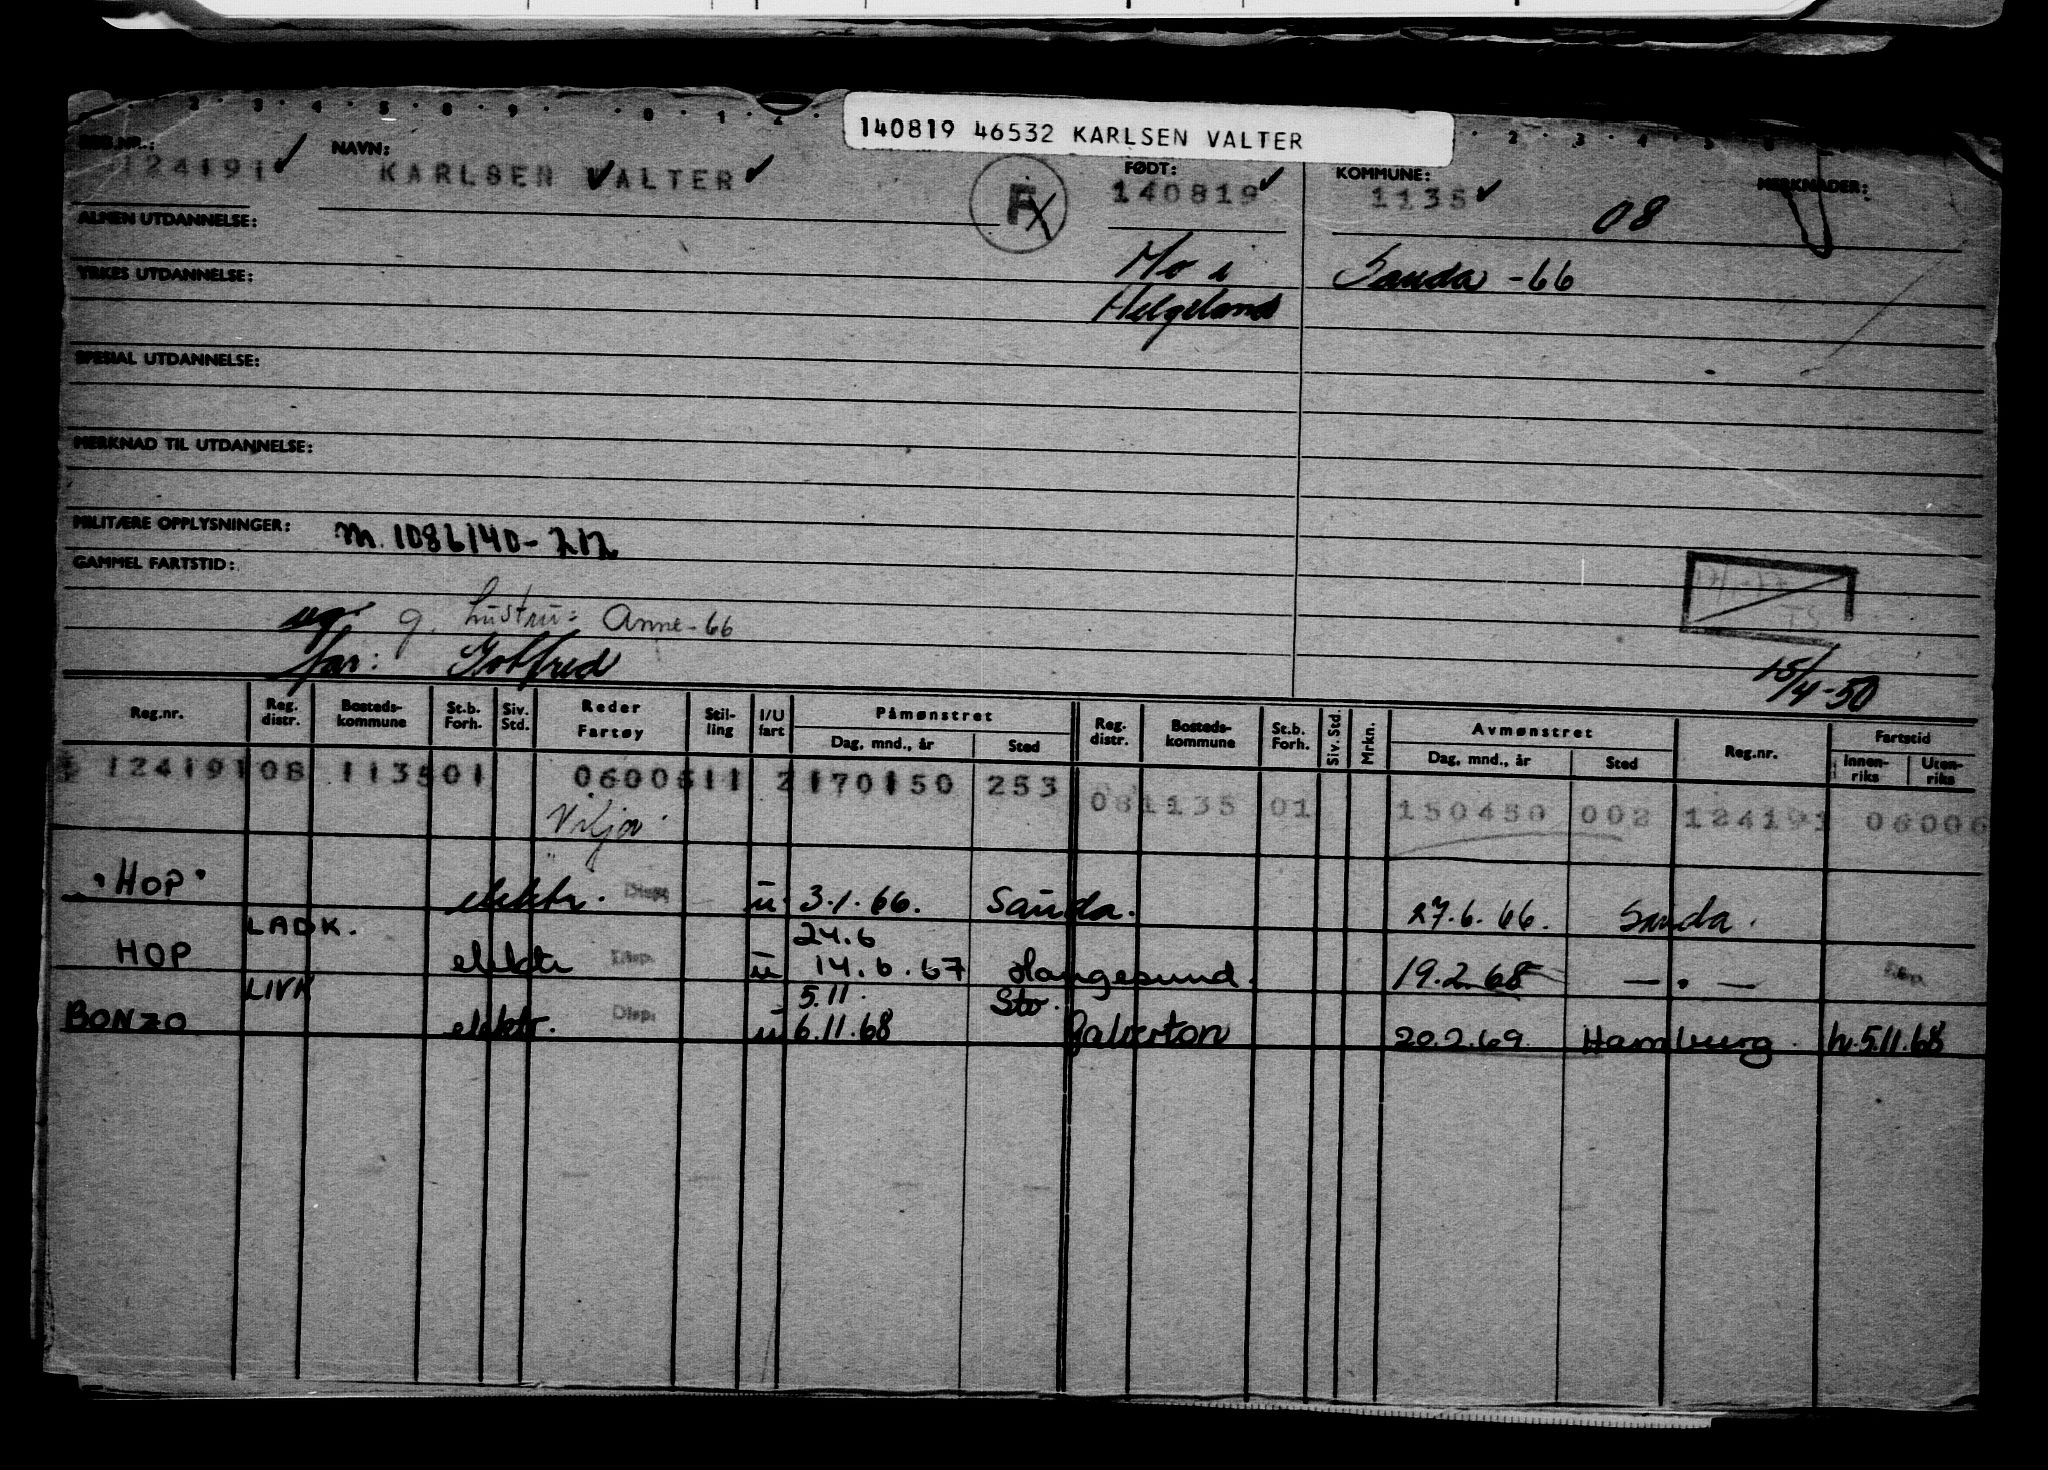 140819 46532 KARLSEN VALTER
REG.NR.: NAVN: FØDT: KOMMUNE: MERKNADER:
124191 KARLSEN VALTER F 140819 1135 08
ALMEN UTDANNELSE:
Mo i Sauda - 66
YRKES UTDANNELSE:
Helgeland
SPESIAL UTDANNELSE:
MERKNAD TIL UTDANNELSE:
MILITÆRE OPPLYSNINGER: M. 1086140-212
GAMMEL FARTSTID:
ug. g. hustru: Anne - 66
far: Gotfred 15/4-50
Reg.nr. Reg. distr. Bosteds-kommune St.b. Forh. Siv. Std. Reder Fartøy Stil-ling I/U fart Påmønstret Dag, mnd., år Sted Reg. distr. Bosteds-kommune St.b. Forh. Siv. Std. Mrkn. Avmønstret Dag, mnd., år Sted Reg.nr. Fartstid Innen-riks Uten-riks
124191 08 1135 01 0600611 2 170150 253 08 1135 01 150450 002 124191 06006
Vilja
"HOP" elektr. Disp. u 3.1.66. Sauda. 27.6.66. Sauda.
LADK. 24.6
HOP elektr Disp. u 14.6.67 Haugesund. 19.2.68 — " —
LIVK 5.11. Sto.
BONZO elektr. Disp. u 6.11.68 Galverton 20.2.69. Hamburg. h. 5.11.68